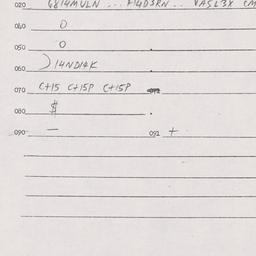 020 6814MULN ... F14D3RN .. VASL3X CM
040 O
050 O .
060 ) 14ND14K
070 C+15 C+15P C+15P
080 $ .
090 — 091 +